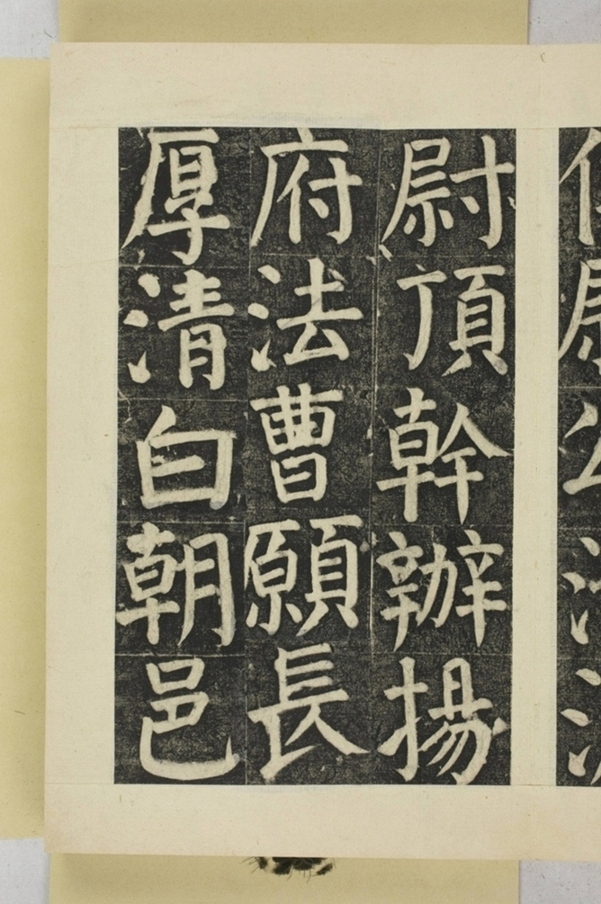 尉頂幹辦揚
府法曹願長
厚清白朝邑